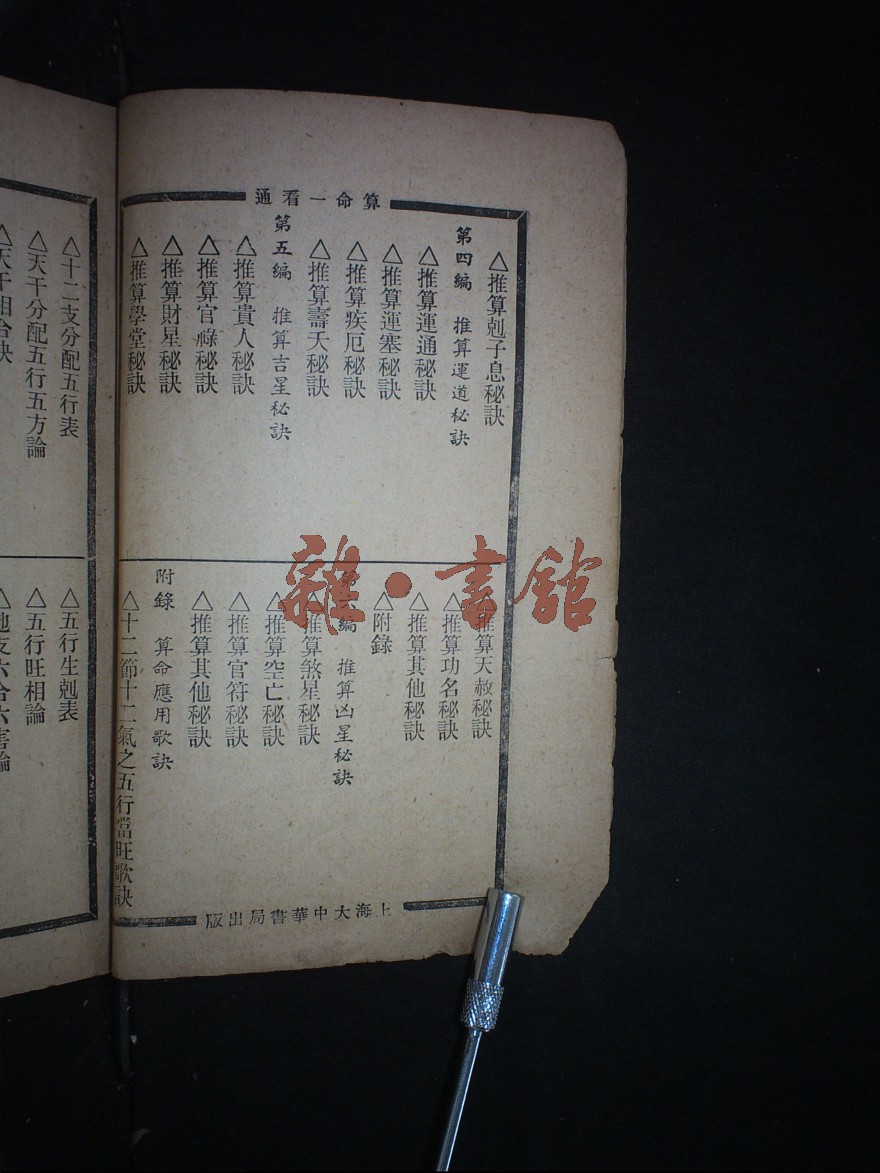 算命一看通
△推算剋子息秘訣
第四編 推算運道秘訣
△推算運通秘訣
△推算運塞秘訣
△推算疾厄秘訣
△推算壽夭秘訣
第五編 推算吉星秘訣
△推算貴人秘訣
△推算官祿秘訣
△推算財星秘訣
△推算學堂秘訣
△推算天赦秘訣
△推算功名秘訣
△推算其他秘訣
△附錄
第六編 推算凶星秘訣
△推算煞星秘訣
△推算空亡秘訣
△推算官符秘訣
△推算其他秘訣
附錄 算命應用歌訣
△十二節十二氣之五行當旺歌訣
上海大中華書局出版
△十二支分配五行表
△天干分配五行五方論
△天干相合訣
△五行生剋表
△五行旺相論
△地支六合六害論
雜·書館